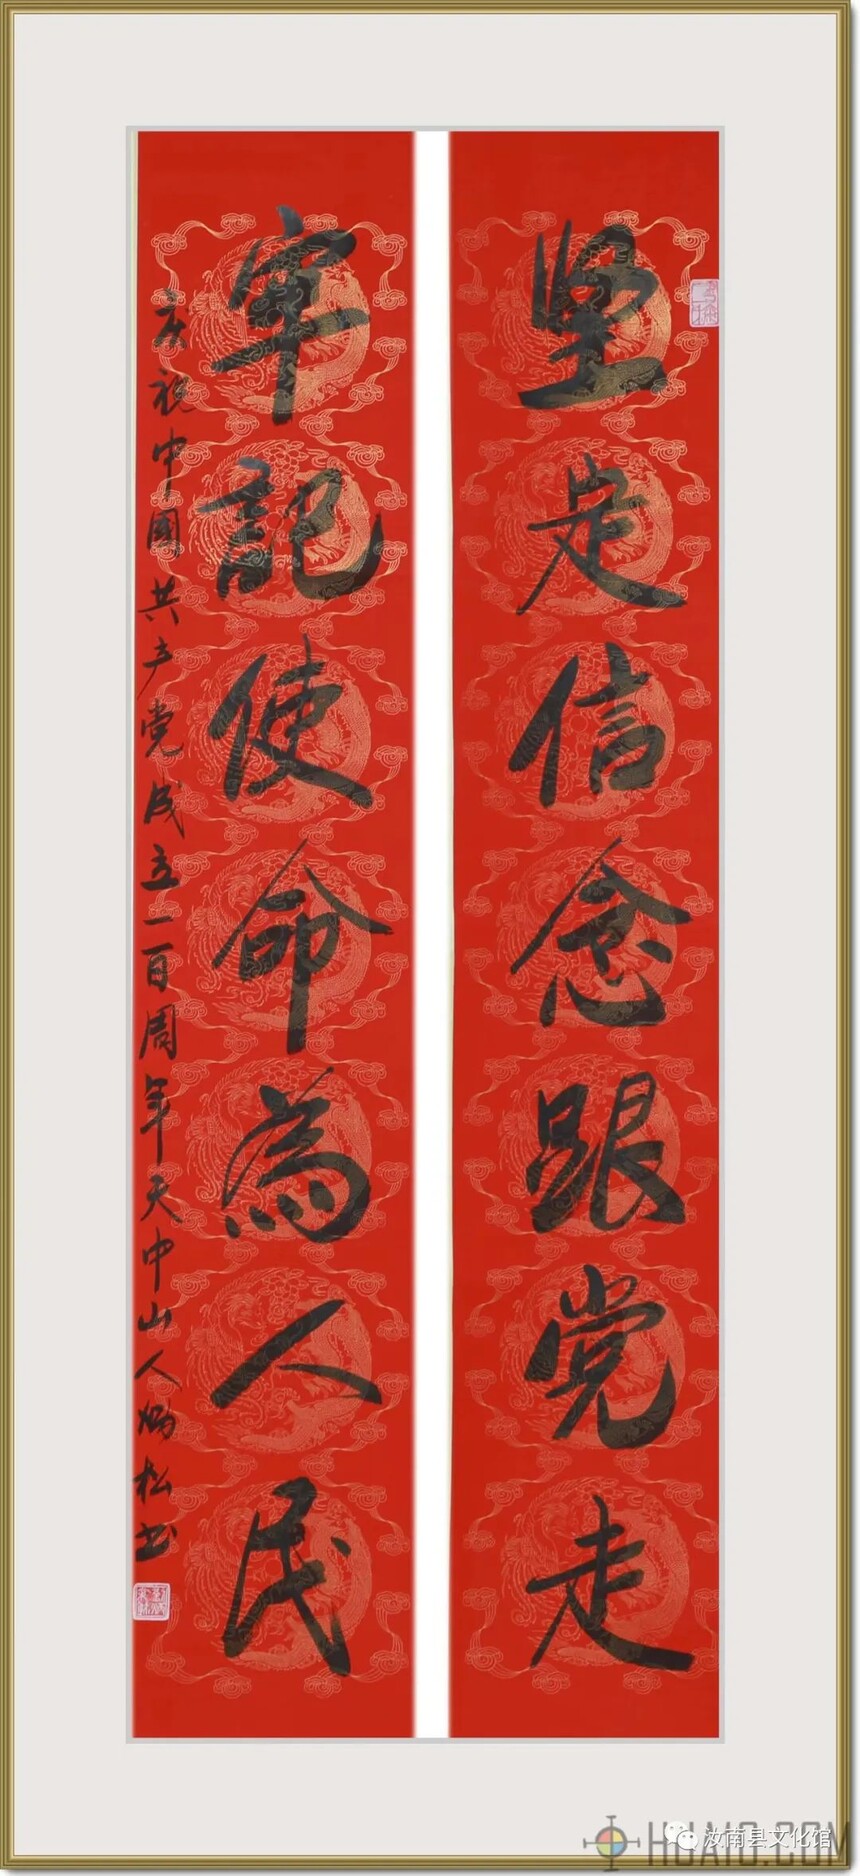 坚定信念跟党走
牢記使命為人民
庆祝中國共产党成立一百周年天中山人炳松书
汝南县文化馆
HUAIO.COM